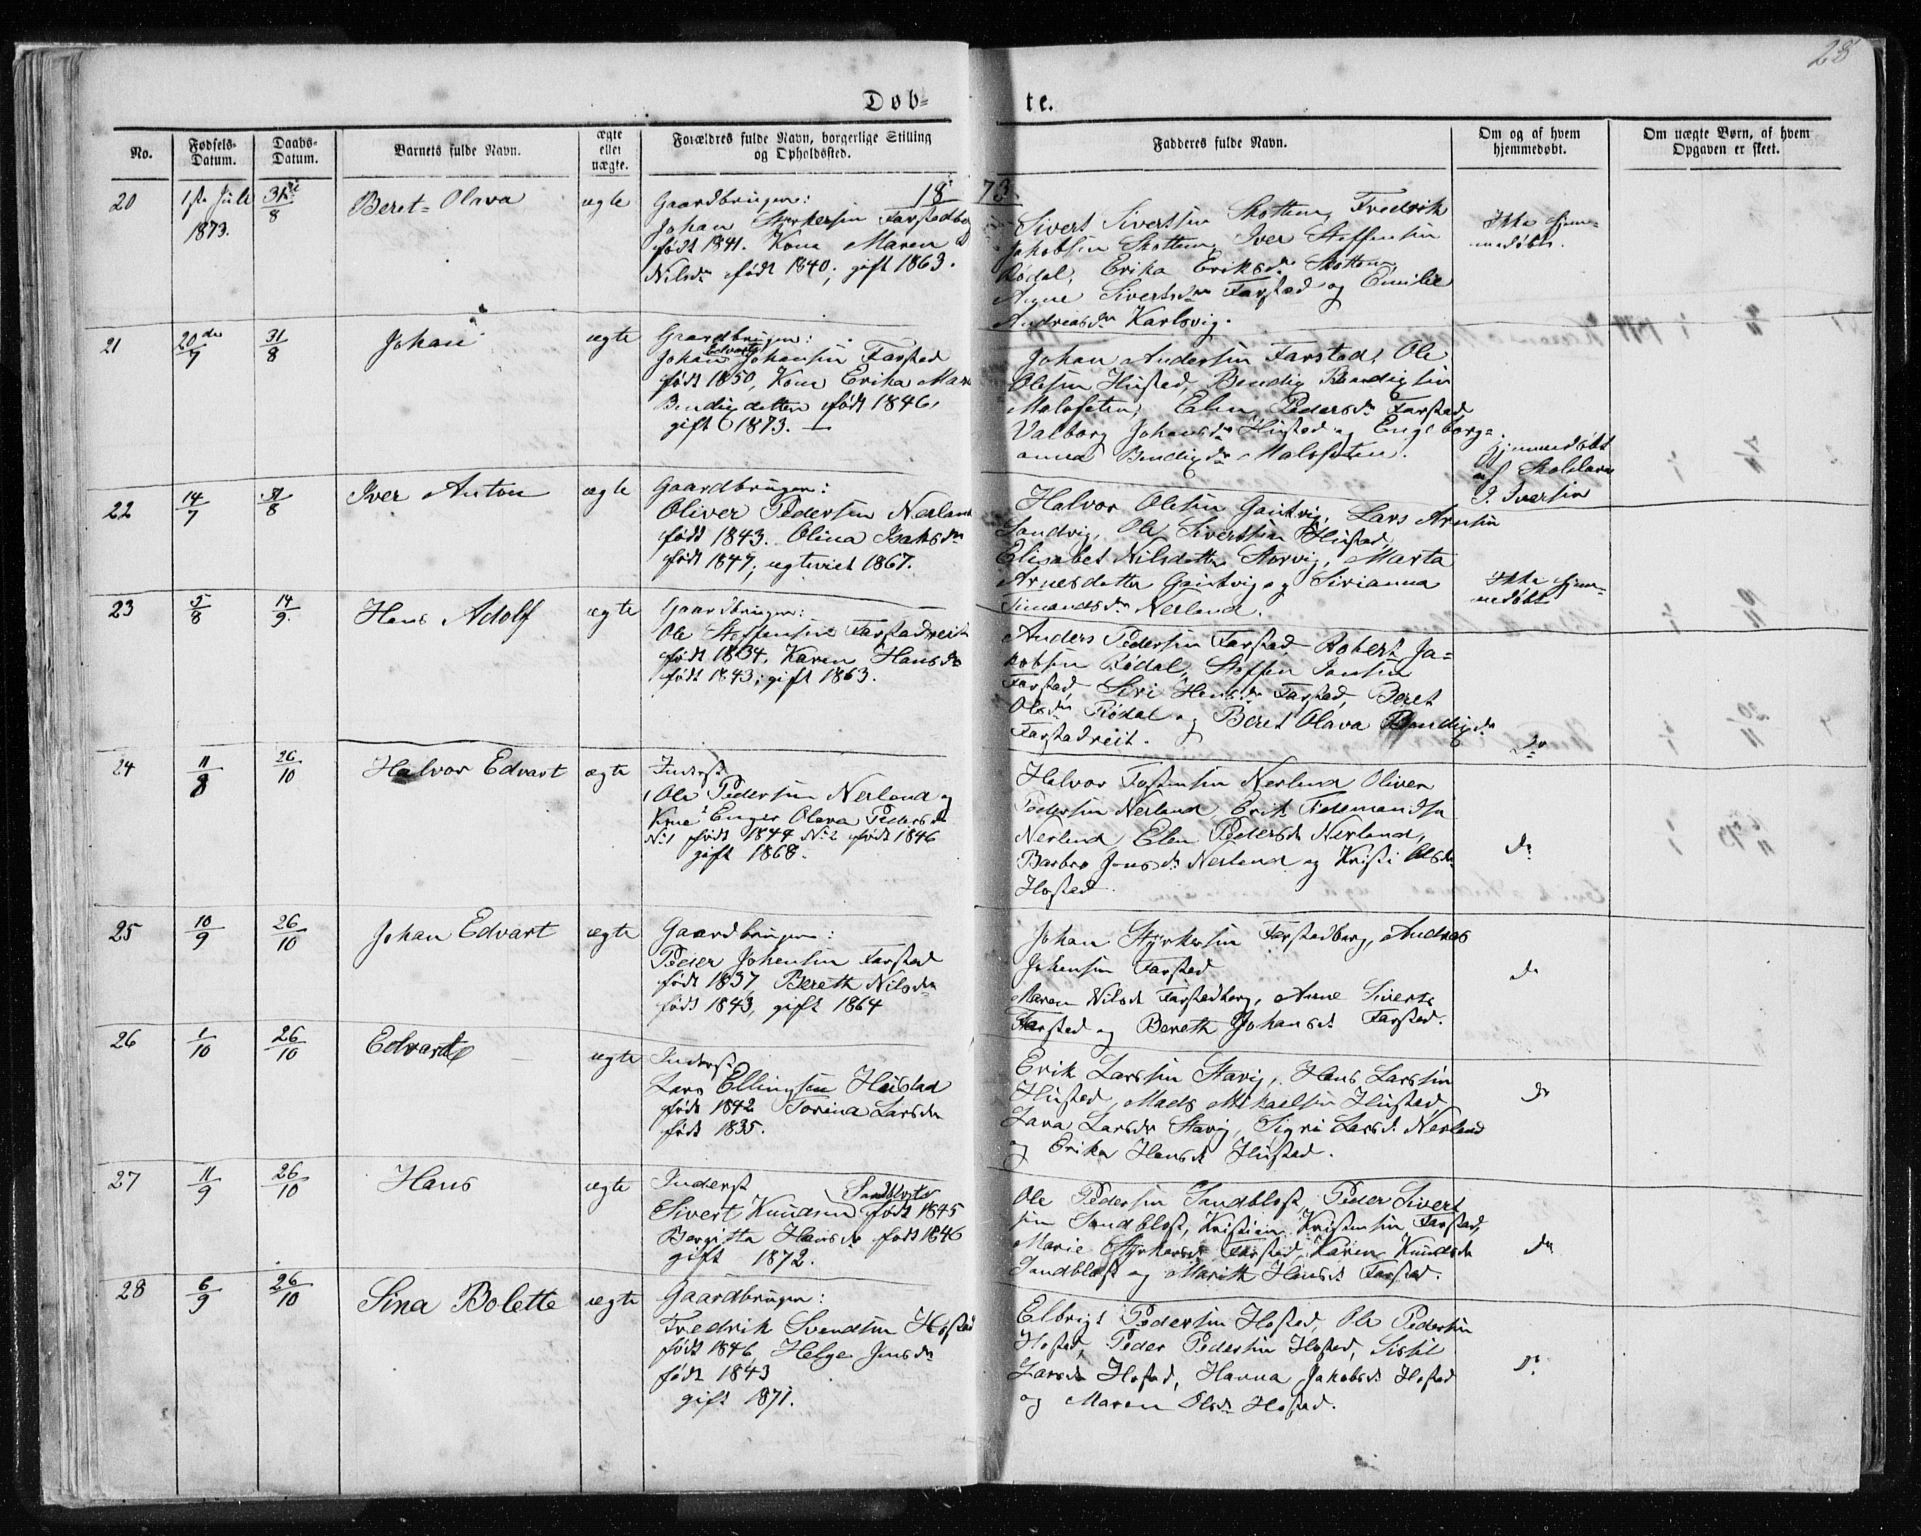 28
Döb-
te.
No.
Fødsels-Datum.
Daabs-Datum.
Barnets fulde Navn.
ægte eller uægte.
Forældres fulde Navn, borgerlige Stilling og Opholdssted.
Fadderes fulde Navn.
Om og af hvem hjemmedøbt.
Om uægte Børn, af hvem Opgaven er skeet.
1873
20
1ste Juli 1873.
31/8
Beret Olava
ægte
Gaardbruger:
Johan Styrkersen Farstadberg
født 1841. Kone Maren
Nilsdr født 1840, gift 1863.
Sivert Sivertsen Skottem, Fredrik
Jakobsen Skottem, Iver Steffensen
Rødal, Erika Eriksdr Skottem,
Anne Sivertsdr Farstad og Emilie
Andreasdr Karlsvig.
Ikke hjem-
medøbt.
21
20de/7
31/8
Johan
ægte
Gaardbruger:
Johan Edvart Johansen Farstad
født 1850, Kone Erika Mar
Bendigdatter født 1846,
gift 1873.
Johan Andersen Farstad, Ole
Olesen Hustad, Bendig Bendigsen
Malosæten, Elen Pedersdr Farstad
Valborg Johansdr Hustad og Engeborg-
anna Bendigdr Malosæten.
Hjemmedøbt
af Skolelærer
P. Iversen
22
14/7
31/8
Iver Anton
ægte
Gaardbruger:
Oliver Pedersen Nerland
født 1843. Olina Isaksdr
født 1847, ægteviet 1867.
Halvor Olesen Gaustvig, Lars Arnsen
Sandvig, Ole Sivertsen Hustad,
Elisabet Nilsdatter Storvig, Marta
Arnesdatter Gaustvig og Sirianna
Simondsdr Nerland.
Ikke hjem-
medøbt
23
5/8
14/9
Hans Adolf
ægte
Gaardbruger:
Ole Steffensen Farstadreit
født 1834, Karen Hansdr
født 1843; gift 1863.
Anders Pedersen Farstad Robert Ja-
kobsen Rødal, Steffen Jansen
Farstad, Siri Hansdr Farstad, Beret
Olsdr Rødal og Beret Olava Bendigsdr
Farstadreit.
Do
24
11/8
26/10
Halvor Edvart
ægte
Inderst
1 Ole Pedersen Nerland og
Kone 2 Enger Olava Pedersdr
No 1 født 1844 No 2 født 1846
gift 1868.
Halvor Tostensen Nerland Oliver
Pedersen Nerland Erik Tidemandsen
Nerland Elen Pedersdr Nerland,
Barbro Jonsdr Nerland og Kristi Olsdr
Hostad
do
25
10/9
26/10
Johan Edvart
ægte
Gaardbruger:
Peder Johansen Farstad
født 1837 Bereth Nilsdr
født 1843, gift 1864
Johan Styrkersen Farstadberg, Andreas
Johansen Farstad
Maren Nilsdr Farstadberg, Anne Siverts
Farstad og Bereth Johansdr Farstad.
do
26
1/10
26/10
Edvard
ægte
Inderst
Lars Ellingsen Hustad
født 1842 Torina Larsdr
født 1835.
Erik Larssen Stavig, Hans Larssen
Hustad, Mads Mikaelsen Hustad
Lava Larsdr Stavig, Sigri Larsdr Nerland
og Erika Hansdr Hustad.
do
27
11/9
26/10
Hans
ægte
Inderst Sandblost
Sivert Knudsen født 1845
Bergitta Hansdr født 1846
gift 1872.
Ole Pedersen Sandblost, Peder Sivert
sen Sandblost, Kristian Kristensen Farstad,
Marie Styrkersdr Farstad, Karen Knudsdr
Sandblost og Marith Hansdr Farstad.
do
28
6/9
26/10
Sina Bolette
ægte
Gaardbruger:
Fredrik Svendsen Hostad
født 1846, Helge Jensdr
født 1843
gift 1871.
Elbrigt Pedersen Hostad, Ole Pedersen
Hostad, Peder Pedersen Hostad, Sisil
Larsdr Hostad, Hanna Jakobsdr Hostad
og Maren Olsdr Hostad.
do